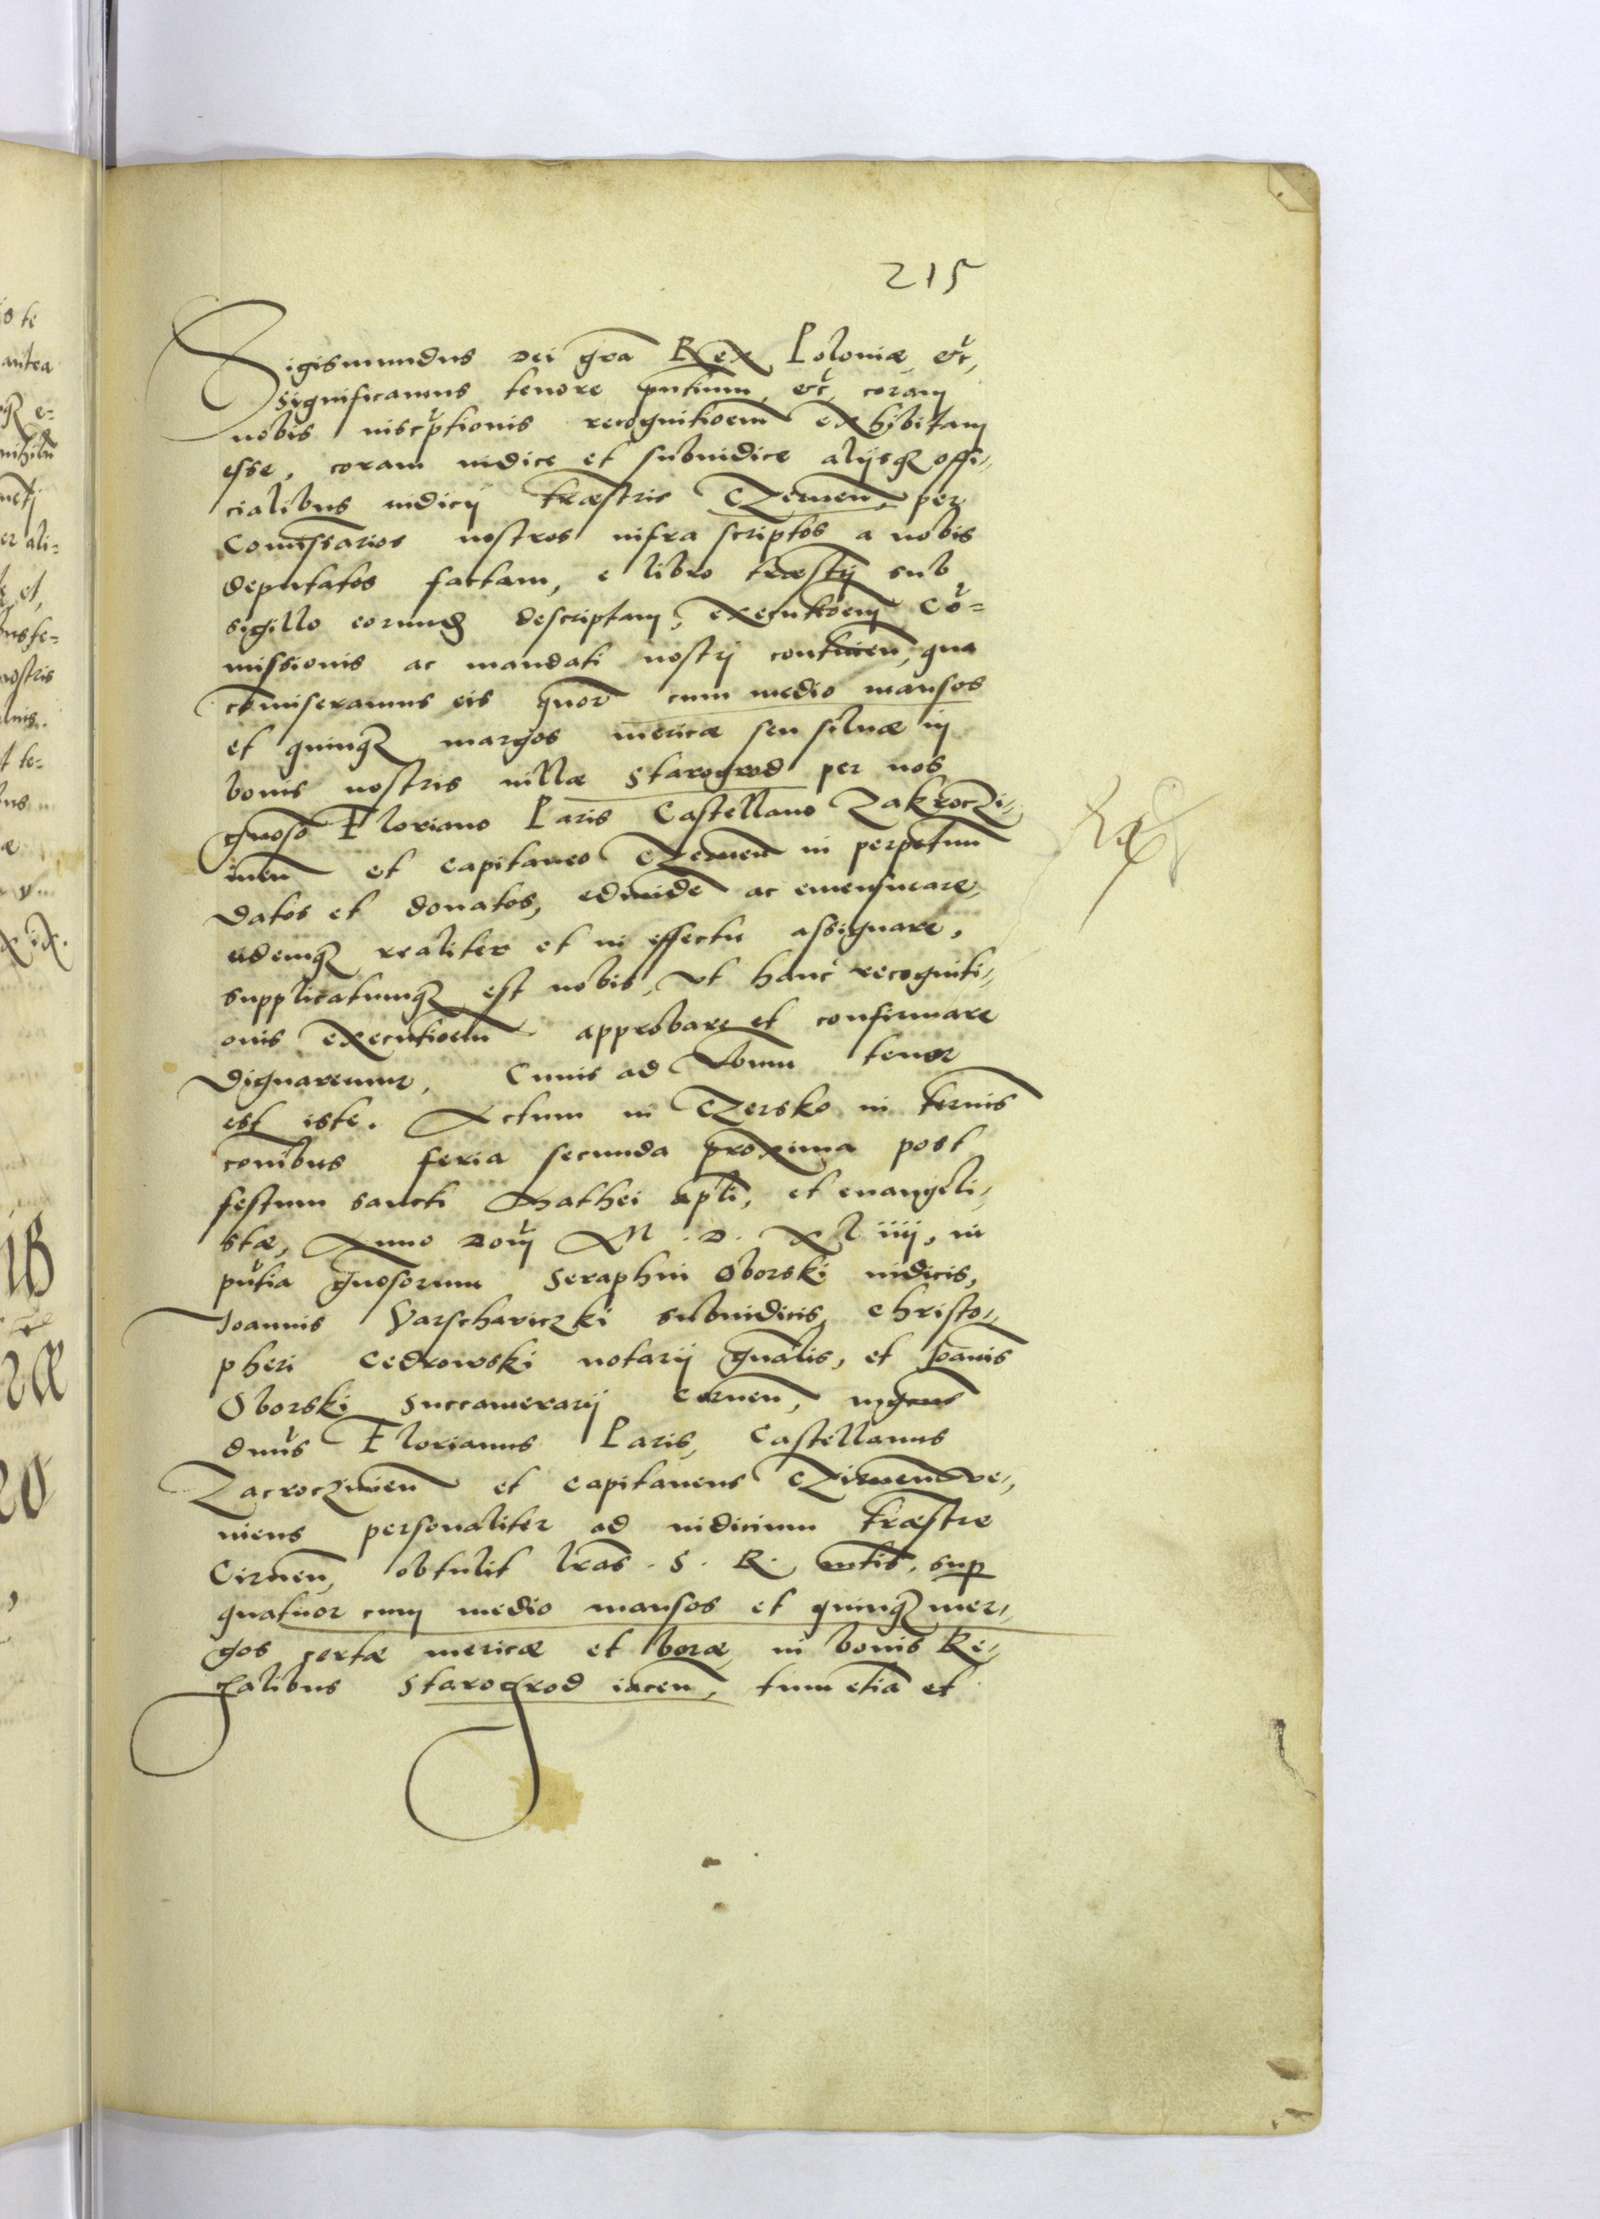 215
Sigismundus Dei gra Rex Poloniæ etc,
Significamus tenore pntium, etc, coram
nobis inscptionis recognitioem exhibitam
esse, coram iudice et subiudice alijsq offi-
cialibus iudicij træstris Czernen, per
Comissarios nostros infra scriptos a nobis
deputatos factam, e libro træstrj sub
sigillo eorund descriptam, executioem Co=
missionis ac mandati nostrj continen, qua
comiseramus eis quor cum medio mansos
et quinq margos mericæ seu siluæ in
bonis nostris villæ Starogrod per nos
gnoso Floriano Paris Castellano Zakroczi-
men et capitaneo Czernen in perpetuum
datos et donatos, ediuide ac emensurare,
eidemq realiter et in effectu assignare,
supplicatumq est nobis, vt hanc recogniti-
onis executioem approbare et confirmare
dignaremur, Cuius ad verbum tenor
est iste. Actum in Czersko in terminis
conibus feria secunda proxima post
festum sancti Mathei apli, et euangeli-
stæ, Anno Domj M. D. XLiiij, in
pntia gnosorum Seraphin Oborski iudicis,
Joannis Parschaviczki subiudicis, Christo-
pheri Cedrowski notarij gnalis, et Joanis
Oborski Succamerarij Cernen,
dnus Florianus Paris, Castellanus
Zacroczimen et capitaneus Czirnen ve-
niens personaliter ad iudicium træstre
Cirnen, obtulit lras. S. R. mtis, sup
quatuor cum medio mansos et quinq mer-
gos certæ mericæ et boræ in bonis Re-
galibus Starogrod iacen, tum etia et